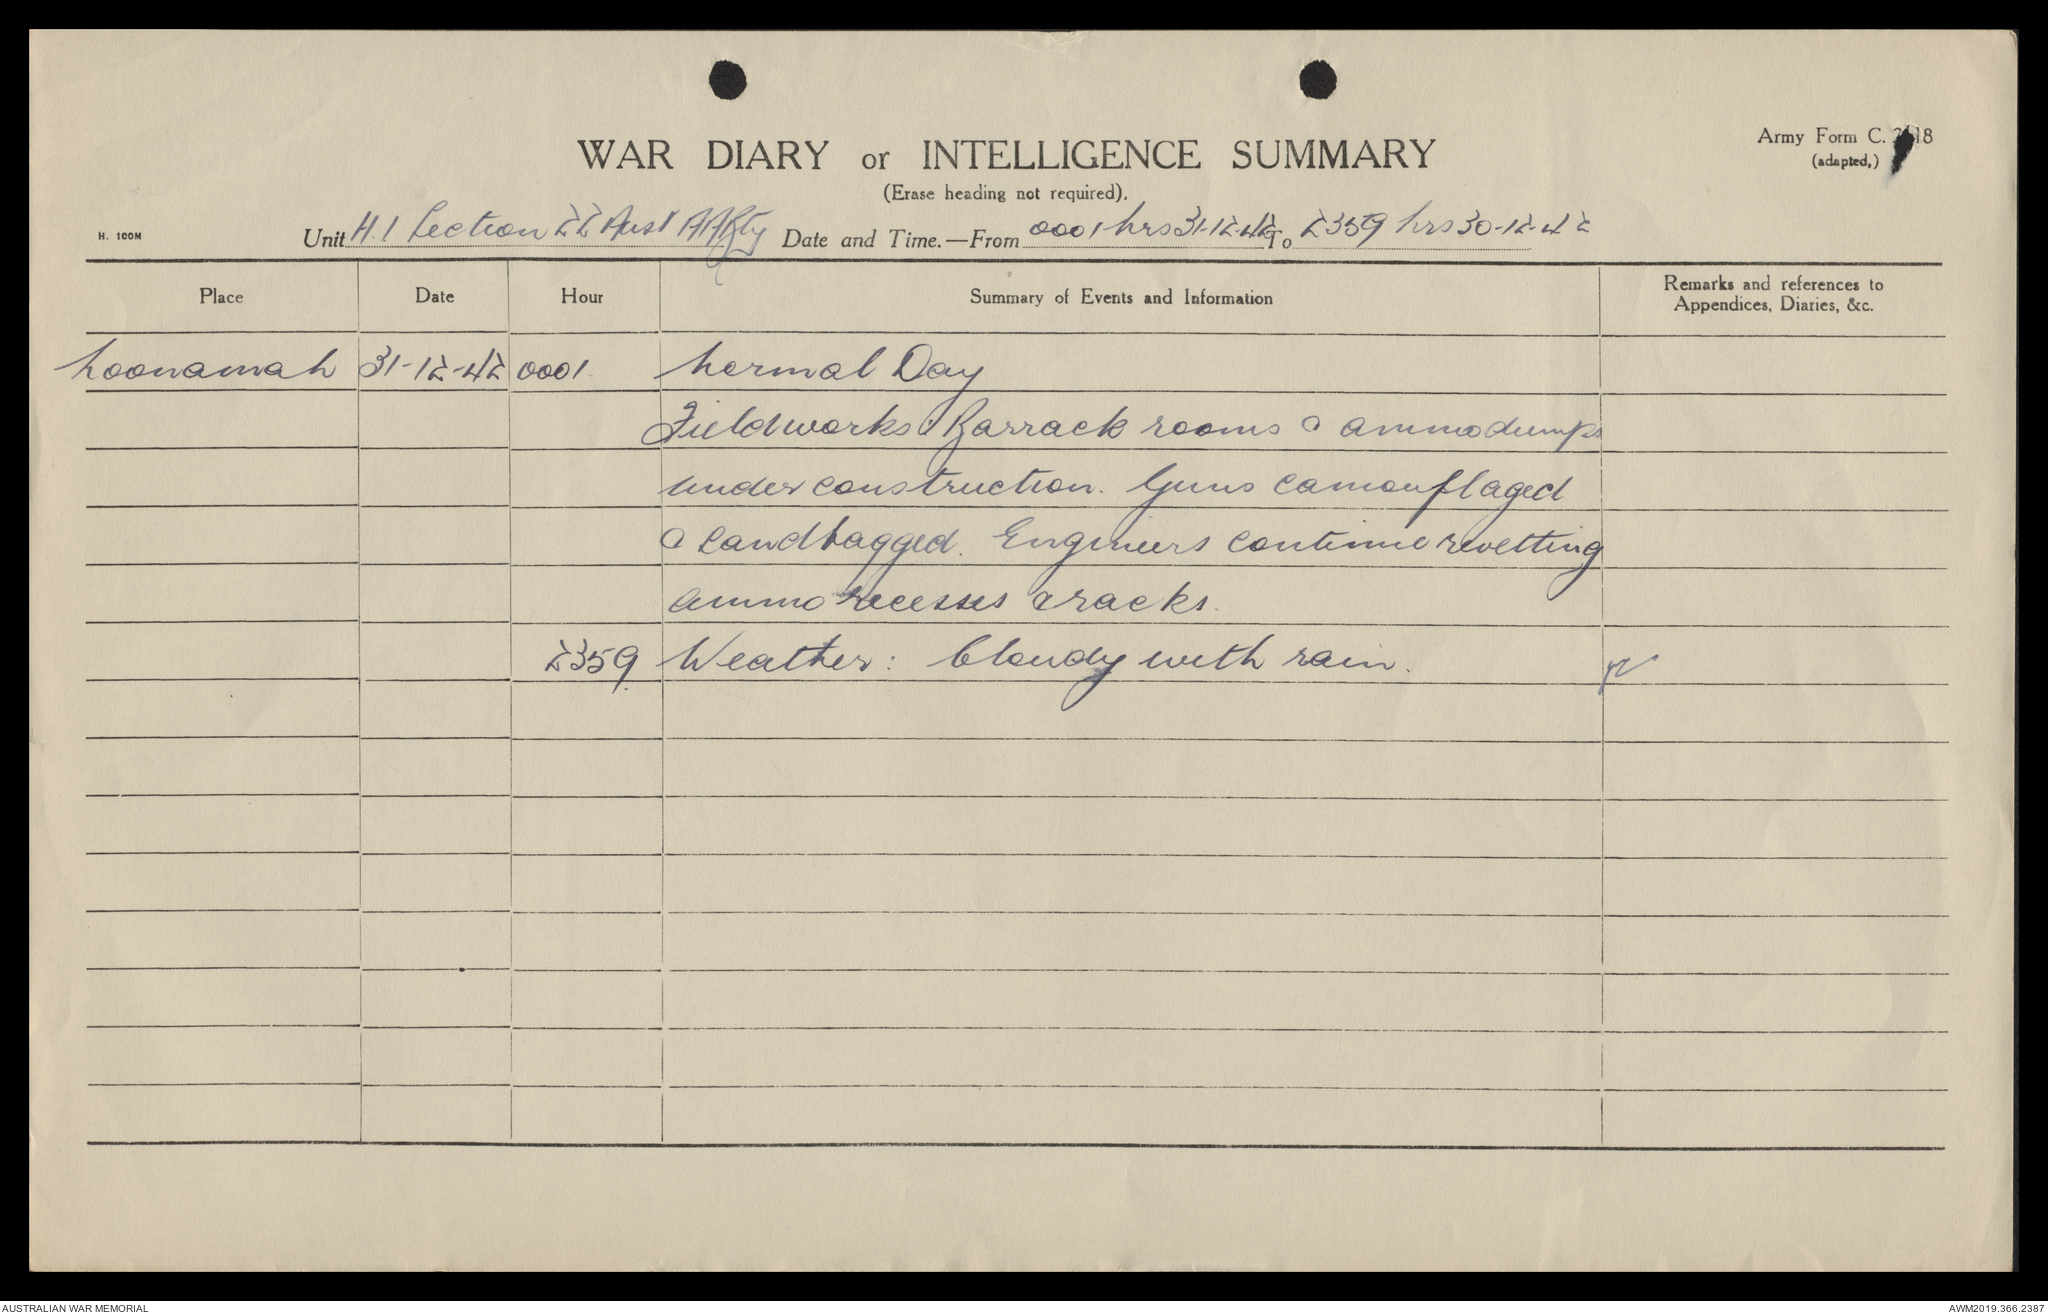 WAR DIARY or INTELLIGENCE SUMMARY
(Erase heading not required).
Army Form C. 18
(adapted,)
H. 100M
Unit H.1 Section 22 Aust AA Bty Date and Time.—From 0001 hrs 31-12-42 To 2359 hrs 30-12-42
Place Date Hour Summary of Events and Information Remarks and references to
Appendices, Diaries, &c.
Noonamah 31-12-42 0001 Normal Day
Fieldworks, Barrack rooms & ammo dumps
under construction. Guns camouflaged
& sandbagged. Engineers continue revetting
ammo recesses & racks.
2359 Weather: Cloudy with rain.
AUSTRALIAN WAR MEMORIAL
AWM2019.366.2387